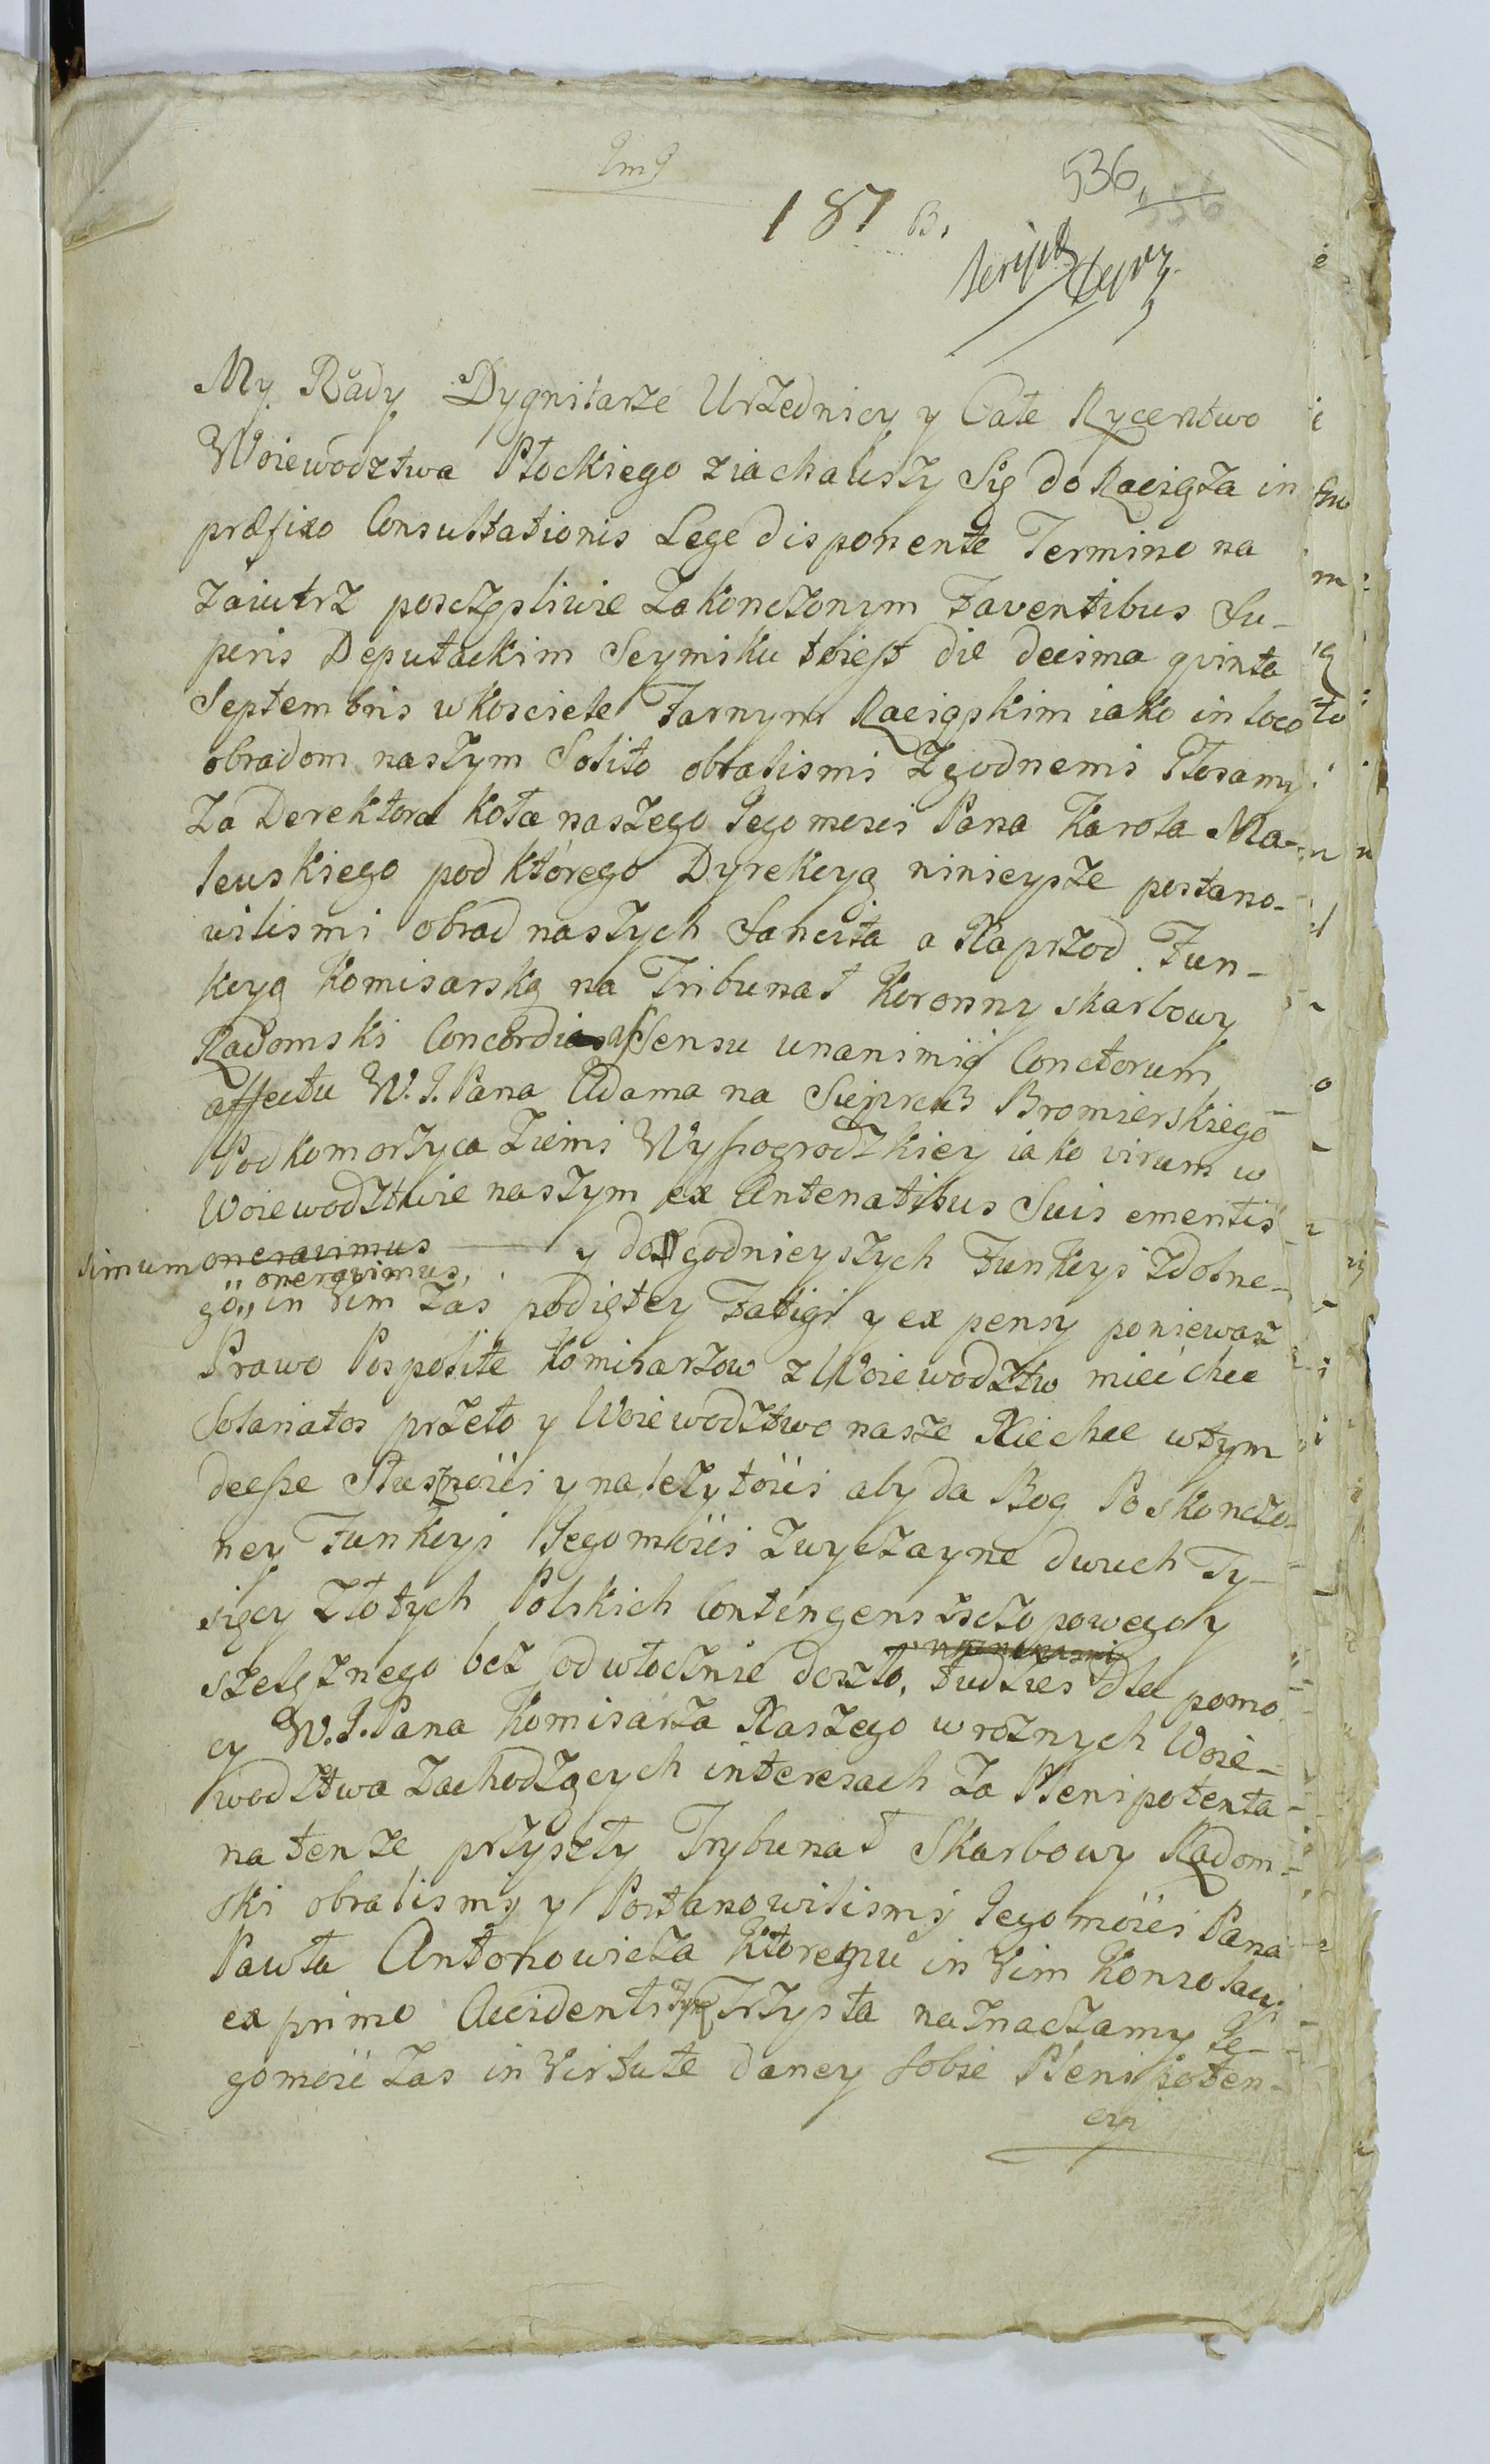 536
187 B.
My Rady Dygnitarze Urzednicy y Całe Rycerstwo
Woiewodztwa Płockiego ziachawszy Się do Raciąża in
præfixo Consultationis Lege disponente Termino na
zaiutrz poszczęsliwie zakonczonym Faventibus Su-
peris Deputackim Seymiku toiest die decima qvinta
Septembris w Kosciele Farnym Raciąskim iako in loco
obradom naszym Solito obralismi zgodnemi Głosamy
za Derektora Koła naszego Jegomosci Pana Karola Ma-
lewskiego pod którego Dyrekcyą ninieysze postano-
wilismi obrad naszych Sancita a Naprzod Fun-
kcyą Komisarską na Tribunał Koronny skarbowy
Radomski Concordi assensu unanimiq Conctorum
affectu W. J. Pana Adama na Sieprcu Bromierskiego
Podkomorzyca Ziemi Wyssogrodzkiey iako virum w
Woiewodztwie naszym ex Antenatibus Suis ementis
simum oneravimus y do godnieyszych Funkcyi zdolne-
oneravimus,
go,, in Vim zas podiętey Fatigi y expensy poniewasz
Prawo Pospolite Komisarzow z Woiewodztw miec chce
Solariatos przeto y Woiewodztwo nasze Niechce w tym
deesse Słusznosci y nalezytosci aby da Bog Po skonczo-
ney Funkcyi Jegomosci zwyczayne dwuch Ty-
sięcy Złotych Polskich Contingens czopowego y
szelęznego bez odwłocznie doszło, tudzies dla pomo
cy W. J. Pana Komisarza Naszego w roznych Woie-
wodztwa zachodzących interesach za Plenipotenta
na tenze przyszły Trybunał Skarbowy Radom-
ski obralismy y Postanowilismy Jegomosci Pana
Pawła Antonowicza ktoremu in Vim Konsolacyi
ex primo Accidenti Trzysta naznaczamy Je-
gomosć zas in Virtute daney sobie Plenipoten-
cyi